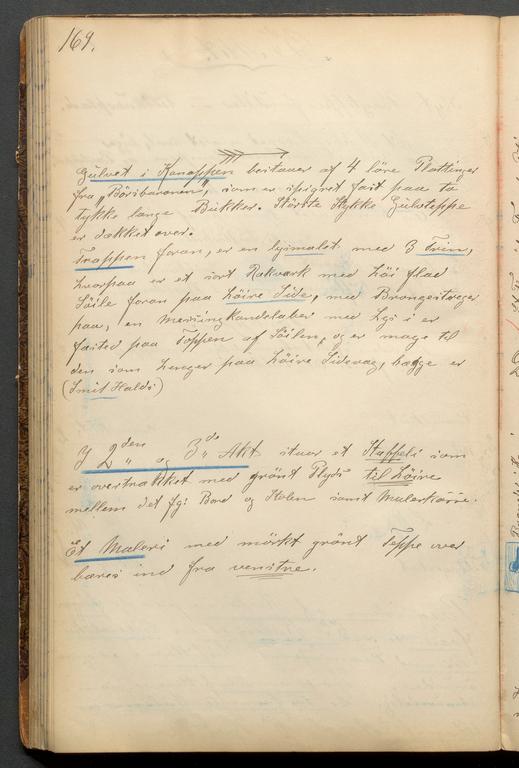 169.
Gulvet i Kanappen bestaaer af 4 löse Plattinger
fra "Börsbaronen", som er spigret fast paa to
tykke lange Bukker. Störste Stykke Gulvteppe
er dækket over.
Trappen foran, er en lysmalet med 3 Trin,
hvorpaa er et sort Rakværk med höi flad
Söile foran paa höire Side, med Bronzestreger
paa, en Messingkandelaber med Lys i er
fastet paa Toppen af Söilen, og er mage til
den som henger paa höire Sidevæg, begge er
(Smit Halds)
I 2den og 3die Akt staaer et Staffeli som
er overtrukket med grönt Plyds til höire
mellem det fgs Bord og Stolen samt Malerkasse.
Et Maleri med mörkt grönt Teppe over
bæres ind fra venstre.